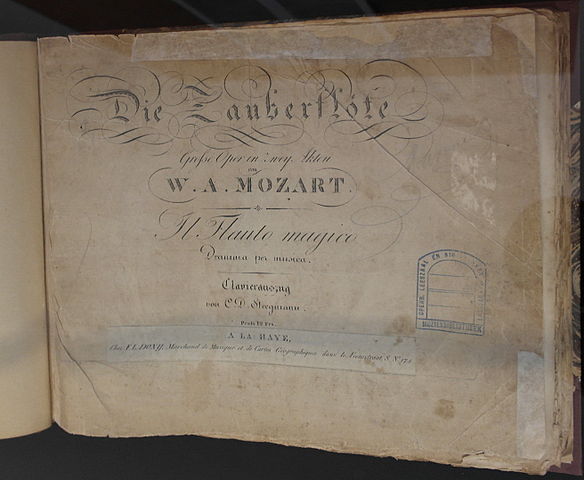 Die Zauberflöte
Grosse Oper in zwey Akten
von
W. A. MOZART.
Il Flauto magico
Dramma per musica.
Clavierauszug
von C. D. Stegmann.
Preis 18 Frs.
A LA HAYE,
Chez F. L. DONY, Marchand de Musique et de Cartes Geographiques dans le
OPENB. LEESZAAL EN
MUZIEKBIBLIOTHEEK